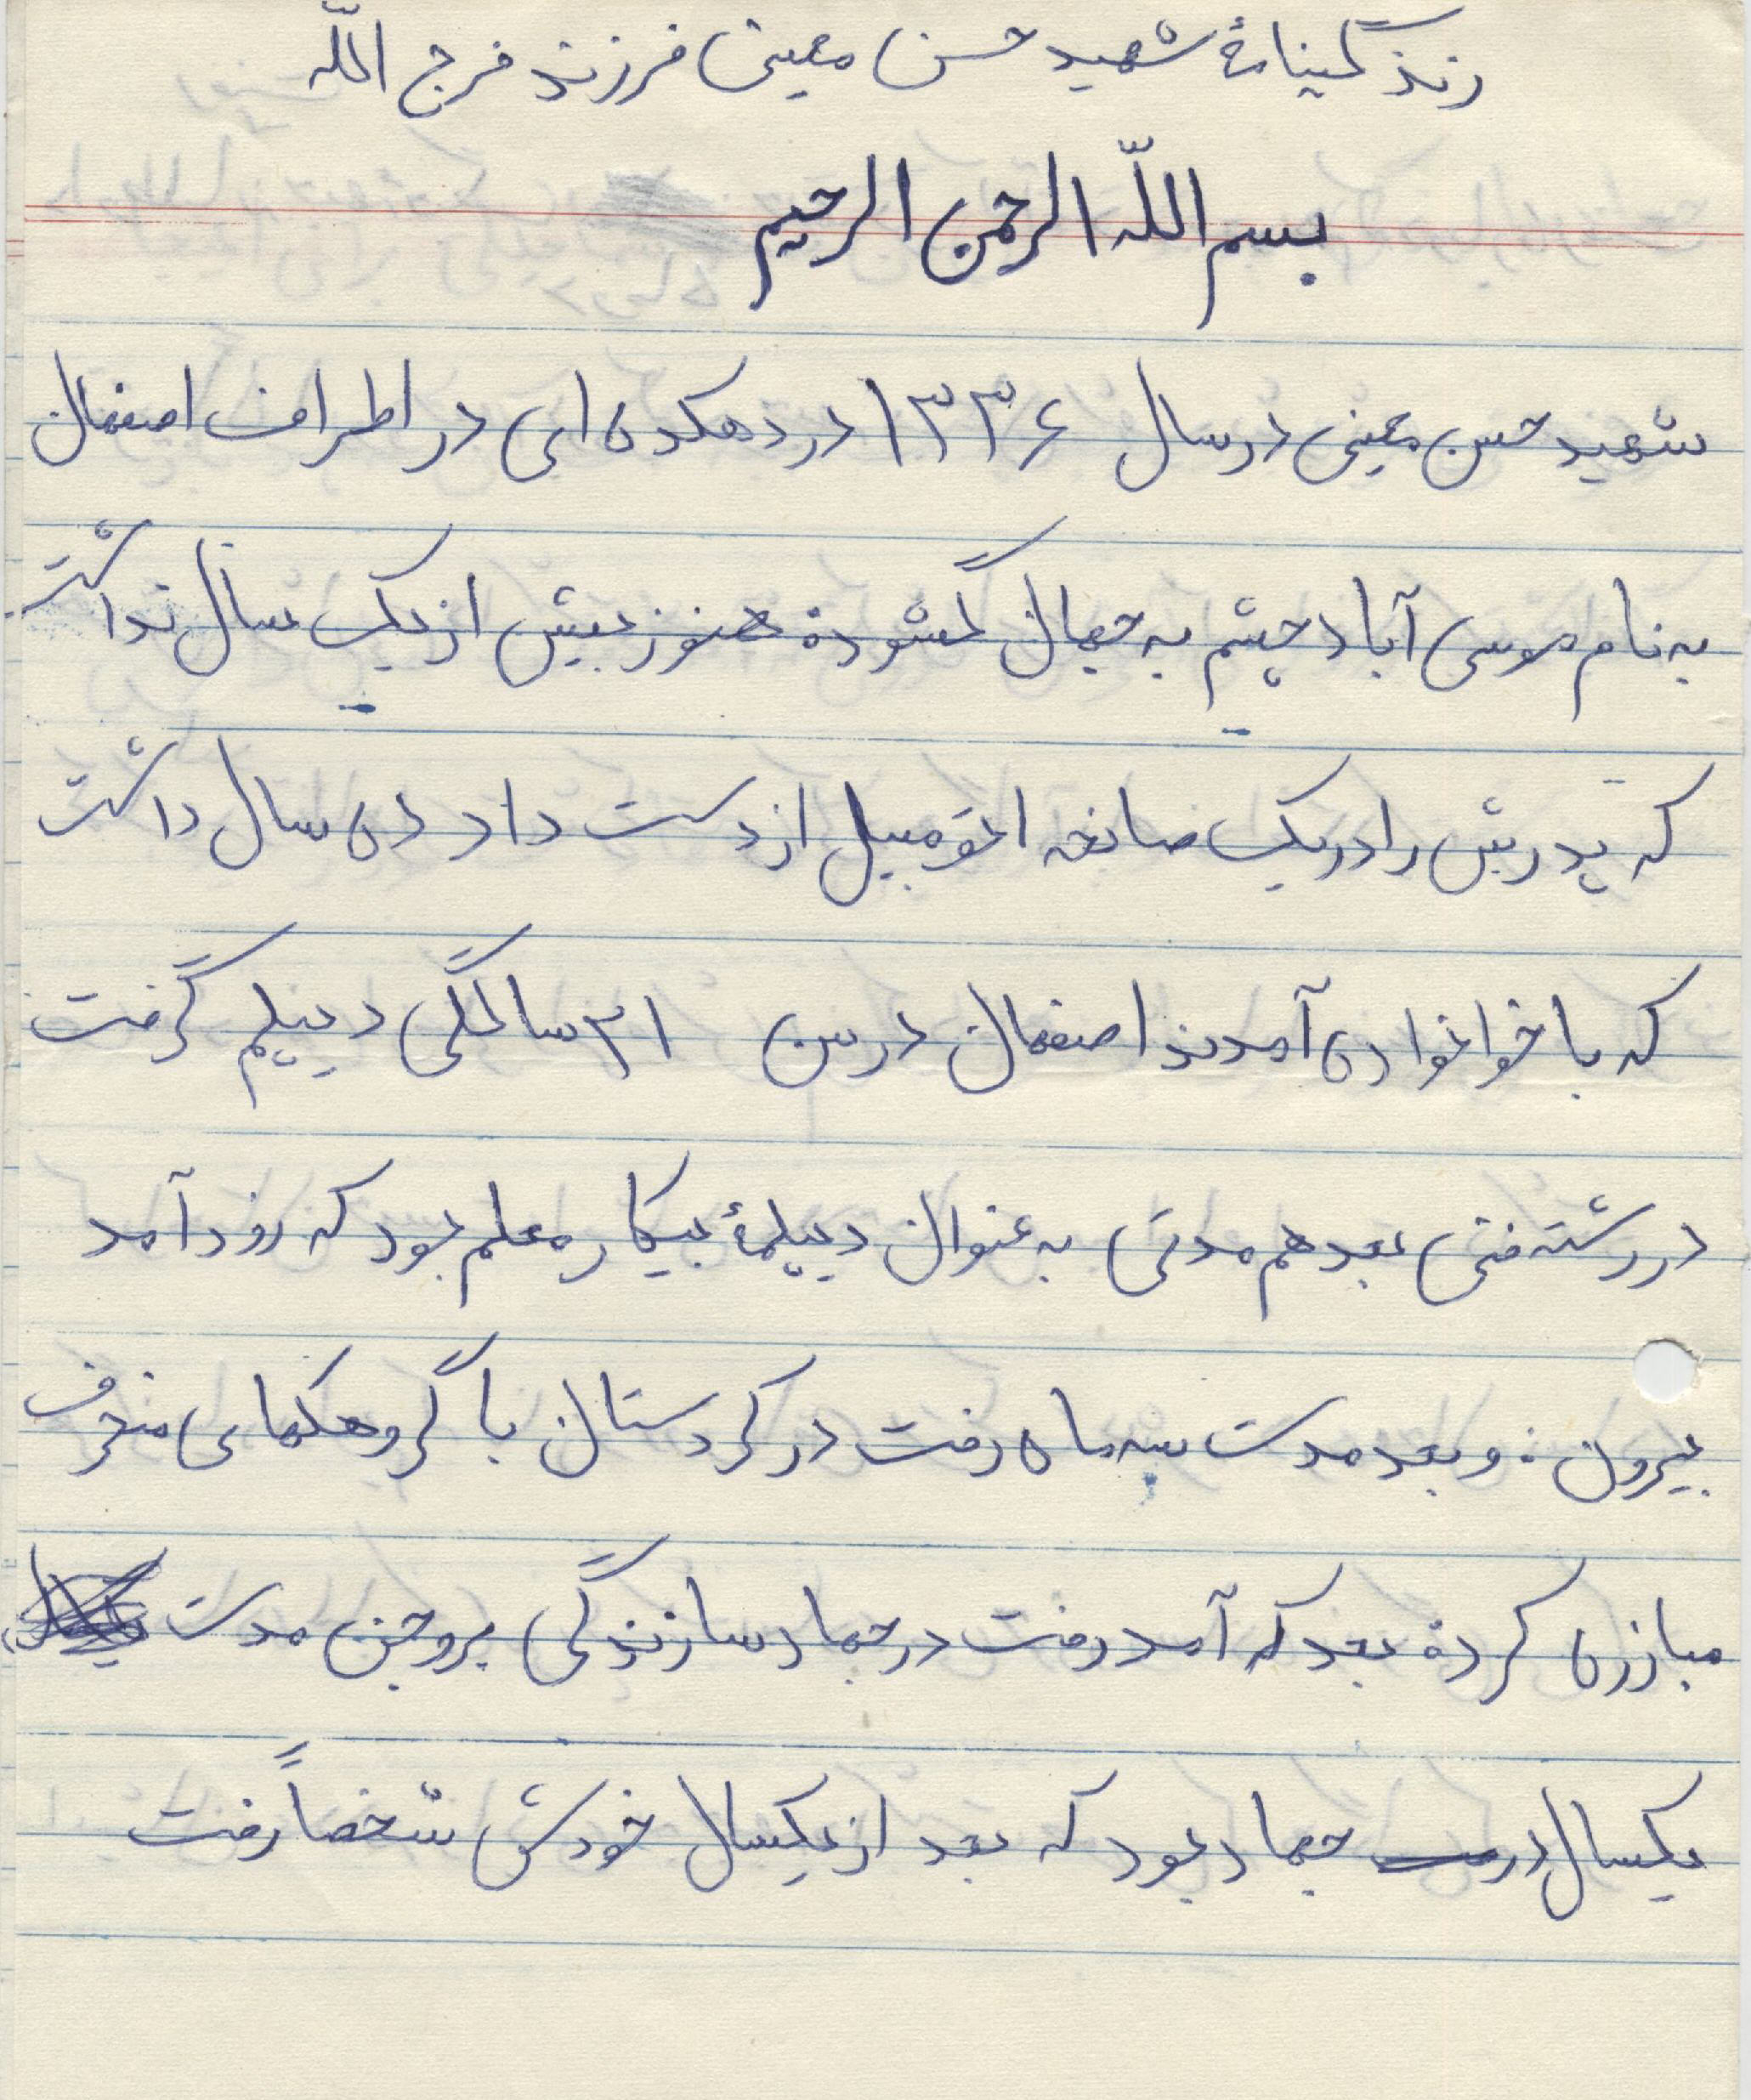 زندگینامهٔ شهید حسن معینی فرزند فرج اللّه
بسم اللّه الرحمن الرحیم
شهید حسن معینی در سال ۱۳۳۶ در دهکده ای در اطراف اصفهان
به نام موسی آباد چشم به جهان گشوده هنوز بیش از یک سال نداشت
که پدرش را در یک صانحه اتومبیل از دست داد ده سال داشت
که با خوانواده آمدند اصفهان در سن ۲۱ سالگی دیپلم گرفت
در رشته فنی بعد هم مدتی به عنوان دیپلمهٔ بیکار معلم بود که زود آمد
بیرون : و بعد مدت سه ماه رفت در کردستان با گروهکهای منحرف
مبارزه کرده بعد که آمد رفت در جهاد سازندگی بروجن مدت
یکسال در جهاد بود که بعد از یکسال خودش شخصاً رفت